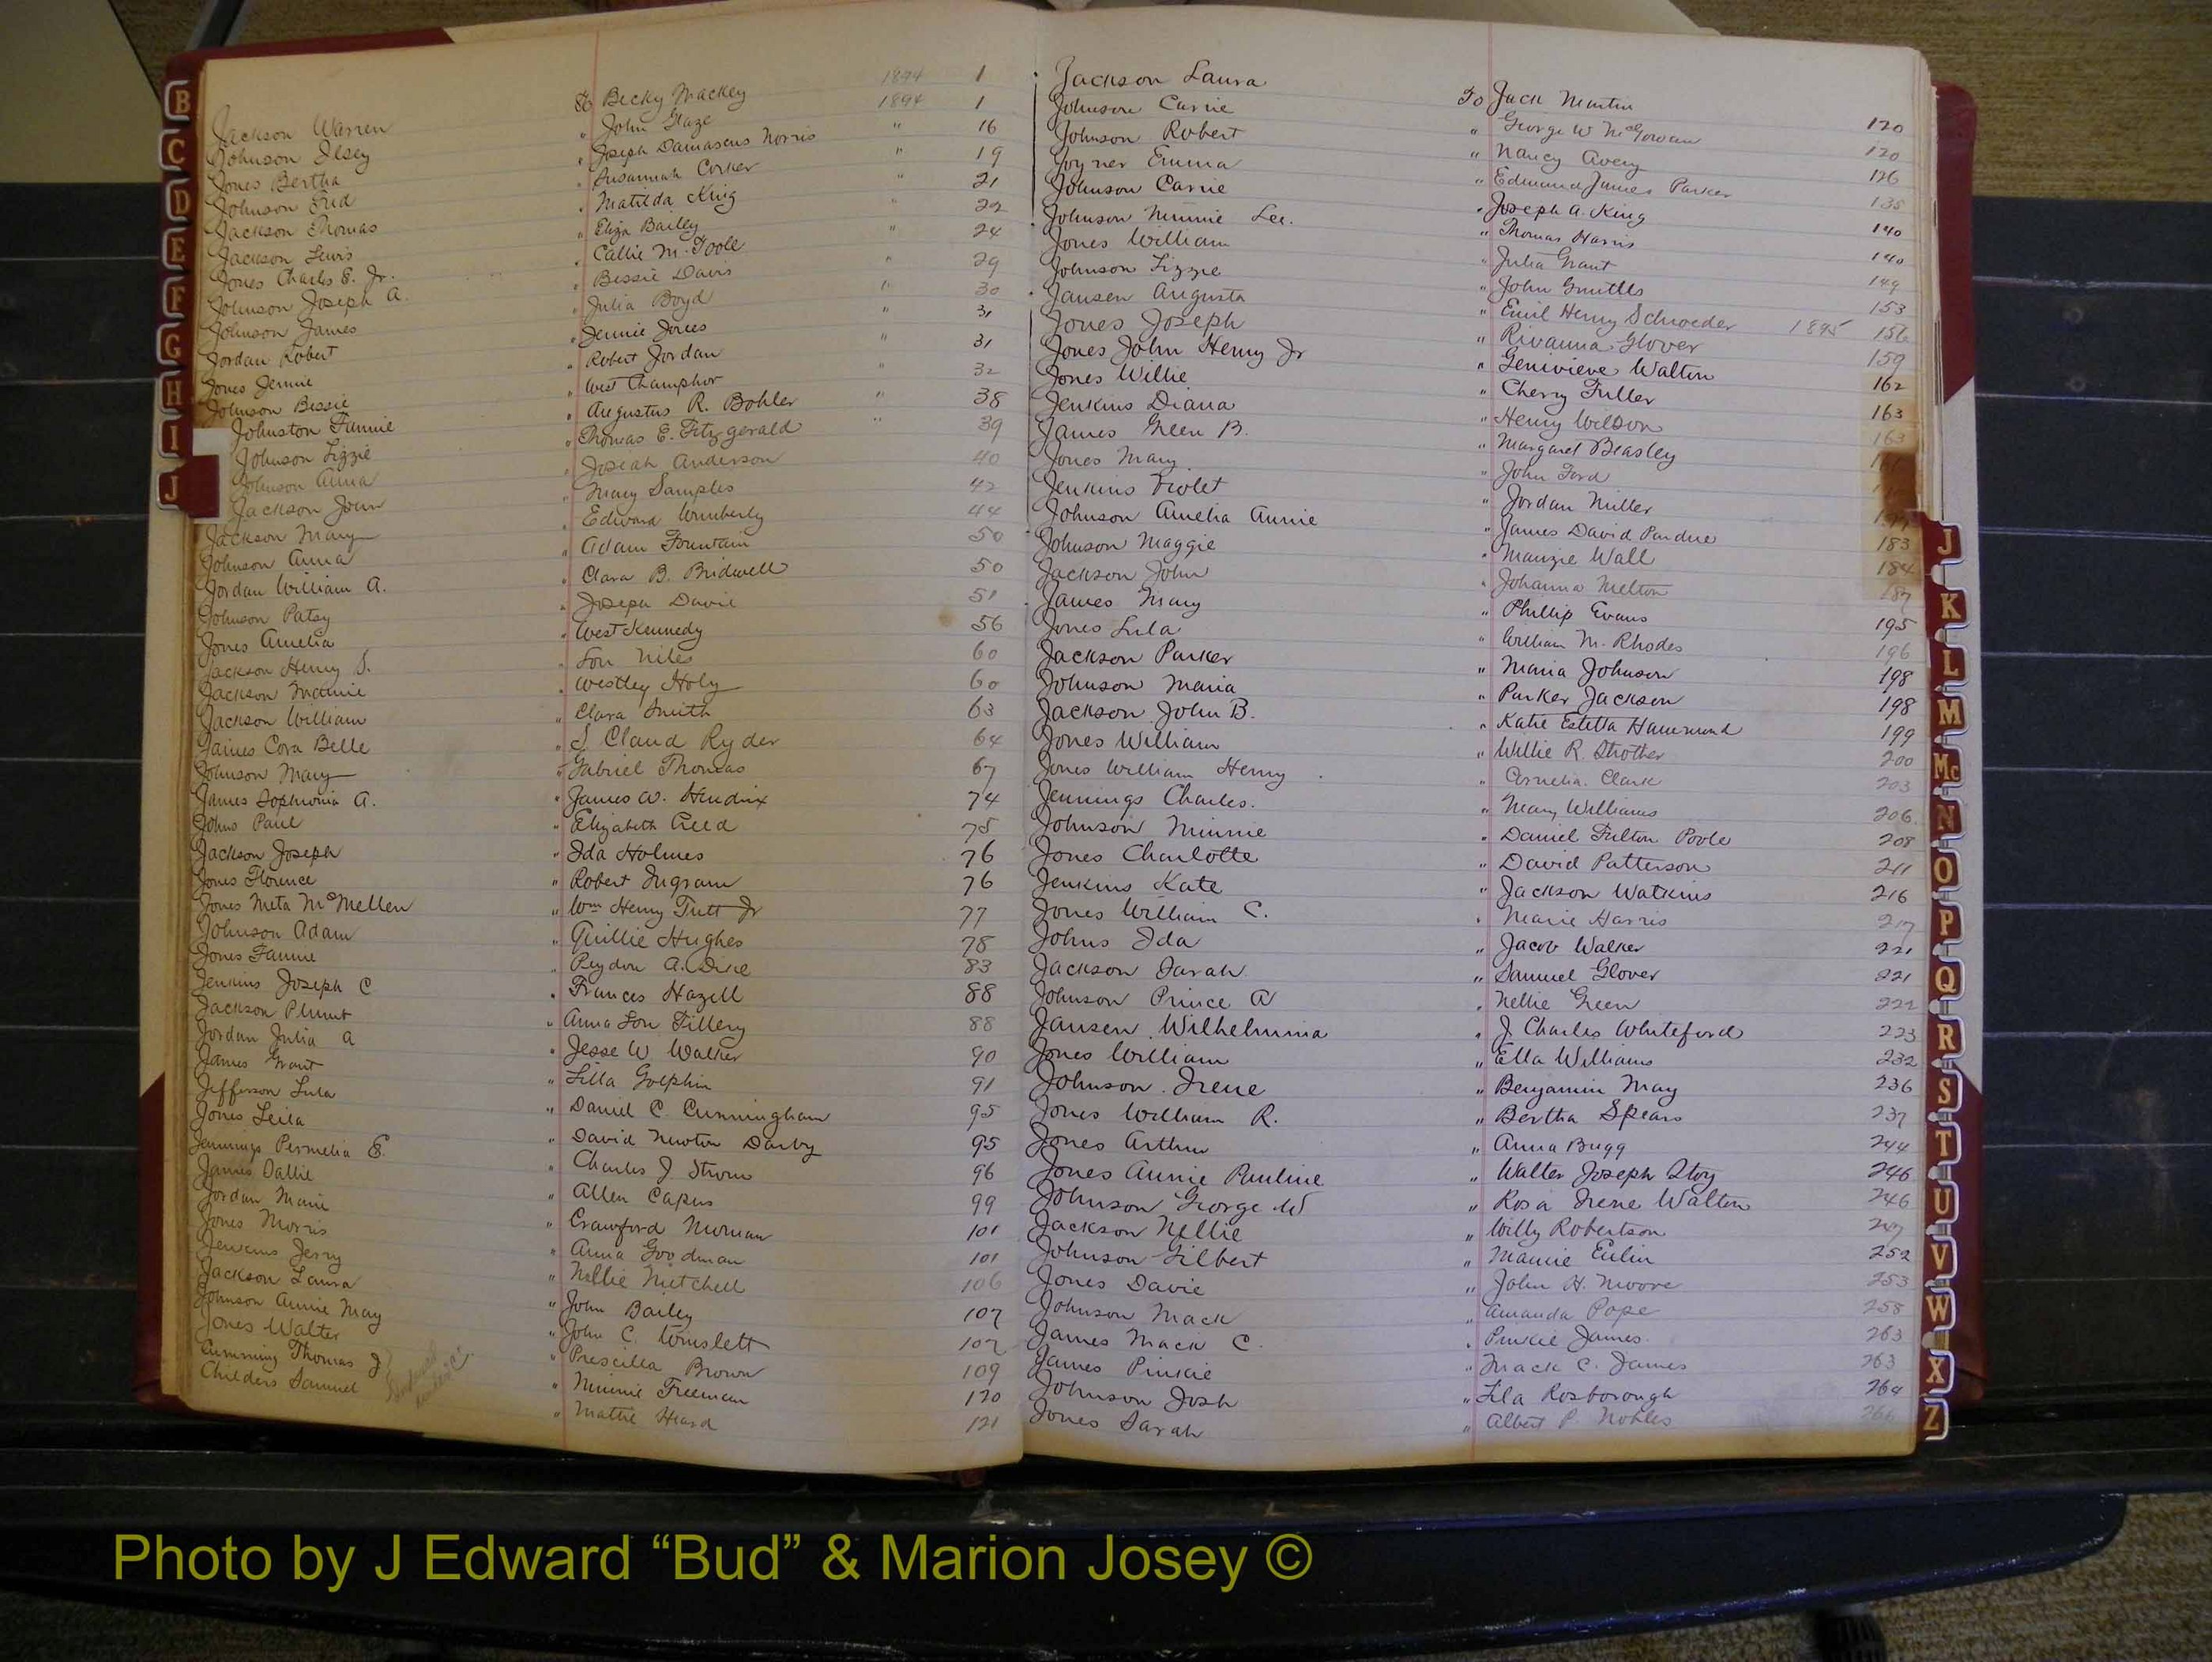 Jackson Warren To Becky Mackey 1894 1
Johnson Ilsey " John Glaze 1894 1
Jones Bertha " Joseph Damascus Norris " 16
Johnson Fred " Susannah Corker " 19
Jackson Thomas " Matilda King " 21
Jackson Lewis " Eliza Bailey " 22
Jones Charles E. Jr. " Callie M. Toole " 24
Johnson Joseph A. " Bessie Davis " 29
Johnson James " Julia Boyd " 30
Jordan Robert " Jennie Jones " 31
Jones Jennie " Robert Jordan " 31
Johnson Bessie " West Champhor " 32
Johnston Fannie " Augustus R. Bohler " 38
Johnson Lizzie " Thomas E. Fitzgerald " 39
Johnson Anna " Josiah Anderson 40
Jackson John " Mary Samples 42
Jackson Mary " Edward Wimberly 44
Johnson Anna " Adam Fountain 50
Jordan William A. " Clara B. Bridwell 50
Johnson Patsy " Joseph Davis 51
Jones Amelia " West Kennedy 56
Jackson Henry S. " Lou Niles 60
Jackson Mamie " Westley Holy 60
Jackson William " Clara Smith 63
James Cora Belle " S. Claud Ryder 64
Johnson Mary " Gabriel Thomas 67
James Sophronia A. " James W. Hendrix 74
Johns Paul " Elizabeth Reed 75
Jackson Joseph " Ida Holmes 76
Jones Florence " Robert Ingram 76
Jones Meta McMellen " Wm Henry Tutt Jr 77
Johnson Adam " Quillie Hughes 78
Jones Fannie " A. 83
Jenkins Joseph C " Frances Hazell 88
Jackson " Anna Lou Tillery 88
Jordan Julia A " Jesse W. Walker 90
James Grant " Lilla Golphin 91
Jefferson Lula " Daniel C. Cunningham 95
Jones Leila " David Newton Darby 95
Jennings Permelia E. " Charles J. Strom 96
James Dallie " Allen Capus 99
Jordan Marie " Crawford 101
Jones Morris " Anna Goodman 101
Jenkins Jerry " Nellie Mitchell 106
Jackson Laura " John Bailey 107
Johnson Annie May " John C. 107
Jones Walter " Priscilla Brown 109
Cumming Thomas J " Minnie Freeman 120
Childers Samuel " Mattie Heard 121
Jackson Laura To Jack Martin 120
Johnson Carrie " George W McGowan 120
Johnson Robert " Nancy Avery 126
Joyner Emma " Edmund James Parker 135
Johnson Carrie " Joseph A. King 140
Johnson Minnie Lee. " Thomas Harris 140
Jones William " Julia Grant 149
Johnson Lizzie " John 153
Jansen Augusta " Emil Henry Schroeder 1895 156
Jones Joseph " Rivanna Glover 159
Jones John Henry Jr " Genivieve Walton 162
Jones Willie " Cherry Fuller 163
Jenkins Diana " Henry Wilson 163
James Green B. " Margaret Beasley
Jones Mary " John Ford
Jenkins Violet " Jordan Miller
Johnson Amelia Annie " James David Pardue 183
Johnson Maggie " Manzie Wall 184
Jackson John " Johanna Melton 187
James Mary " Phillip Evans 195
Jones Lula " William M. Rhodes 196
Jackson Parker " Maria Johnson 198
Johnson Maria " Parker Jackson 198
Jackson John B. " Katie Estella Hammond 199
Jones William " Willie R. Strother 200
Jones William Henry " Cornelia Clark 203
Jennings Charles. " Mary Williams 206
Johnson Minnie " Daniel Fulton Poole 208
Jones Charlotte " David Patterson 211
Jenkins Kate " Jackson Watkins 216
Jones William C. " Marie Harris 217
Johns Ida " Jacob Walker 221
Jackson Sarah " Samuel Glover 221
Johnson Prince A " Nellie Green 222
Jansen Wilhelmina " J Charles Whiteford 223
Jones William " Ella Williams 232
Johnson Irene " Benjamin May 236
Jones William R. " Bertha Spears 237
Jones Arthur " Anna Bugg 244
Jones Annie Pauline " Walter Joseph Stoy 246
Johnson George W " Rosa Irene Walton 246
Jackson Nellie " Willy Robertson 247
Johnson Gilbert " Mamie Eulin 252
Jones Davie " John H. Moore 253
Johnson Mack " Amanda Pope 258
James Mack C. " Pinkie James 263
James Pinkie " Mack C. James 263
Johnson Josh " Lila Rosborough 264
Jones Sarah " Albert P. Nobles 266
B
C
D
E
F
G
H
I
J
J
K
L
M
Mc
N
O
P
Q
R
S
T
U
V
W
X
Z
Photo by J Edward “Bud” & Marion Josey ©